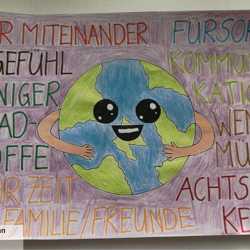 R MITEINANDER
GEFÜHL
NIGER
AD-
OFFE
R ZEIT
FAMILIE/FREUNDE
FÜRSO
KOMMU
KATIO
WEN
MÜ
ACHTS
KE